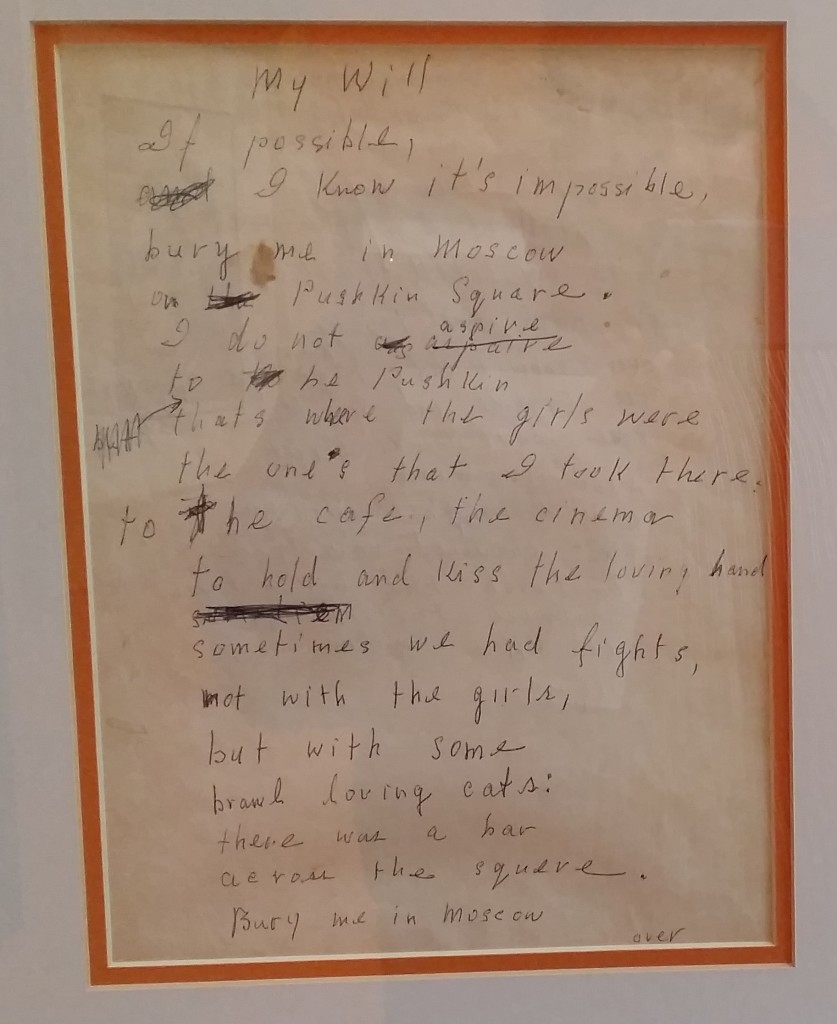 My Will
If possible,
I know it's impossible,
bury me in Moscow
on Pushkin Square.
I do not aspire
to be Pushkin
thats where the girls were
the one's that I took there.
to the cafe, the cinema
to hold and kiss the loving hand
sometimes we had fights,
not with the girls,
but with some
brawl loving cats:
there was a bar
across the squere.
Bury me in Moscow
over